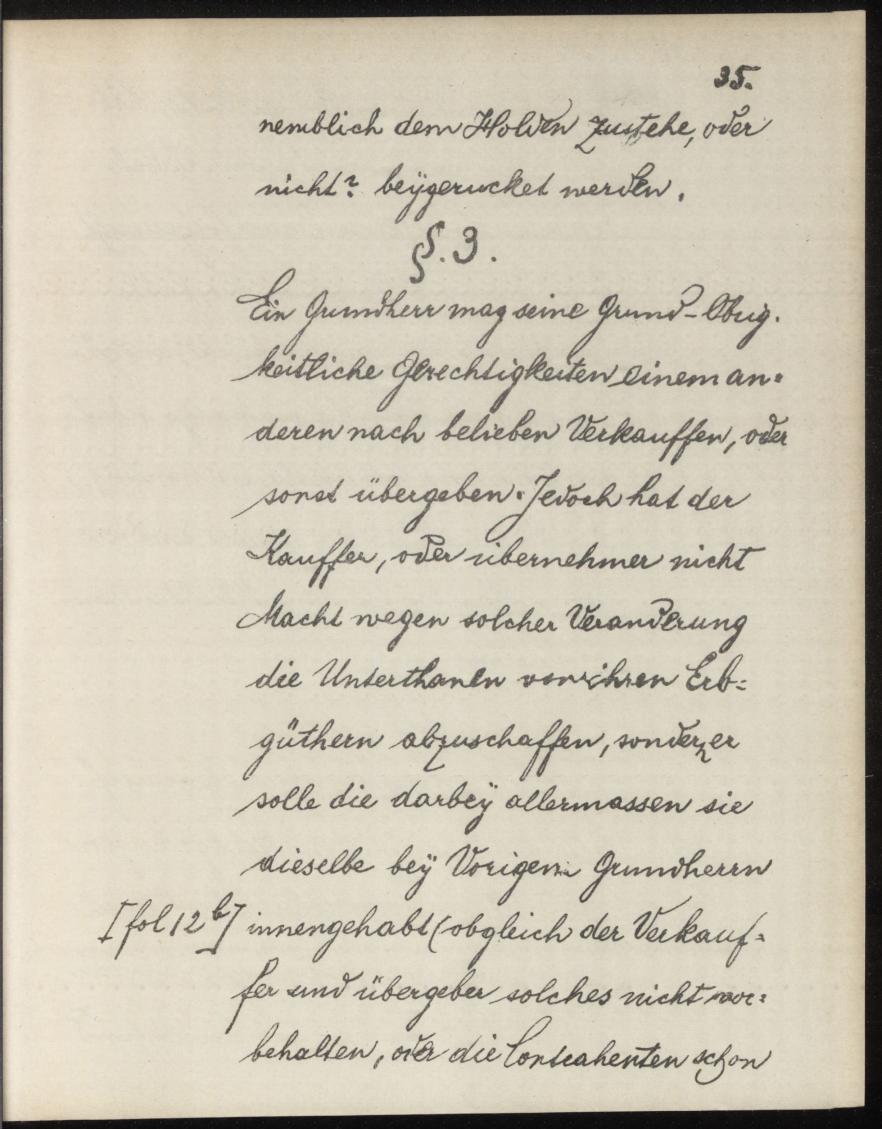 35.
nemblich dem Holden zustehe, oder
nicht? beÿgerucket werden.
§. 3.
Ein Grundherr mag seine Grund-Obrig.
keitliche Gerechtigkeiten einem an=
deren nach belieben Verkauffen, oder
sonst übergeben. Jedoch hat der
Kauffer, oder übernehmer nicht
Macht wegen solcher Veranderung
die Unterthanen von ihren Erb=
güthern abzuschaffen, sondern er
solle die darbeÿ allermassen sie
dieselbe beÿ Vorigem Grundherrn
[fol 12 b] innengehabt (obgleich der Verkauf=
fer und übergeber solches nicht vor=
behalten, oder die Contrahenten schon